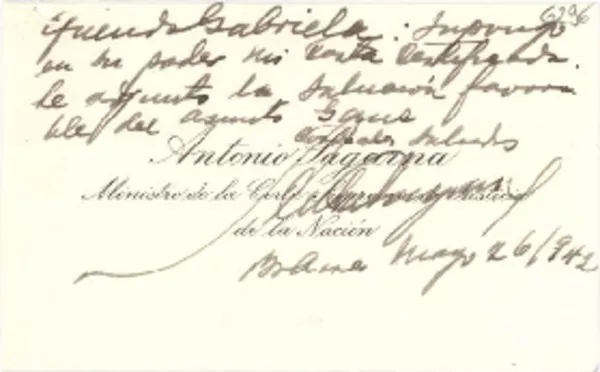 6296
Querida Gabriela: Supongo
en su poder mi carta certificada.
Le adjunto la solución favora
ble del asunto
saludos
Antonio Sagarna
Ministro de la Corte Suprema de Justicia
de la Nación
Bs Aires Mayo 26/942